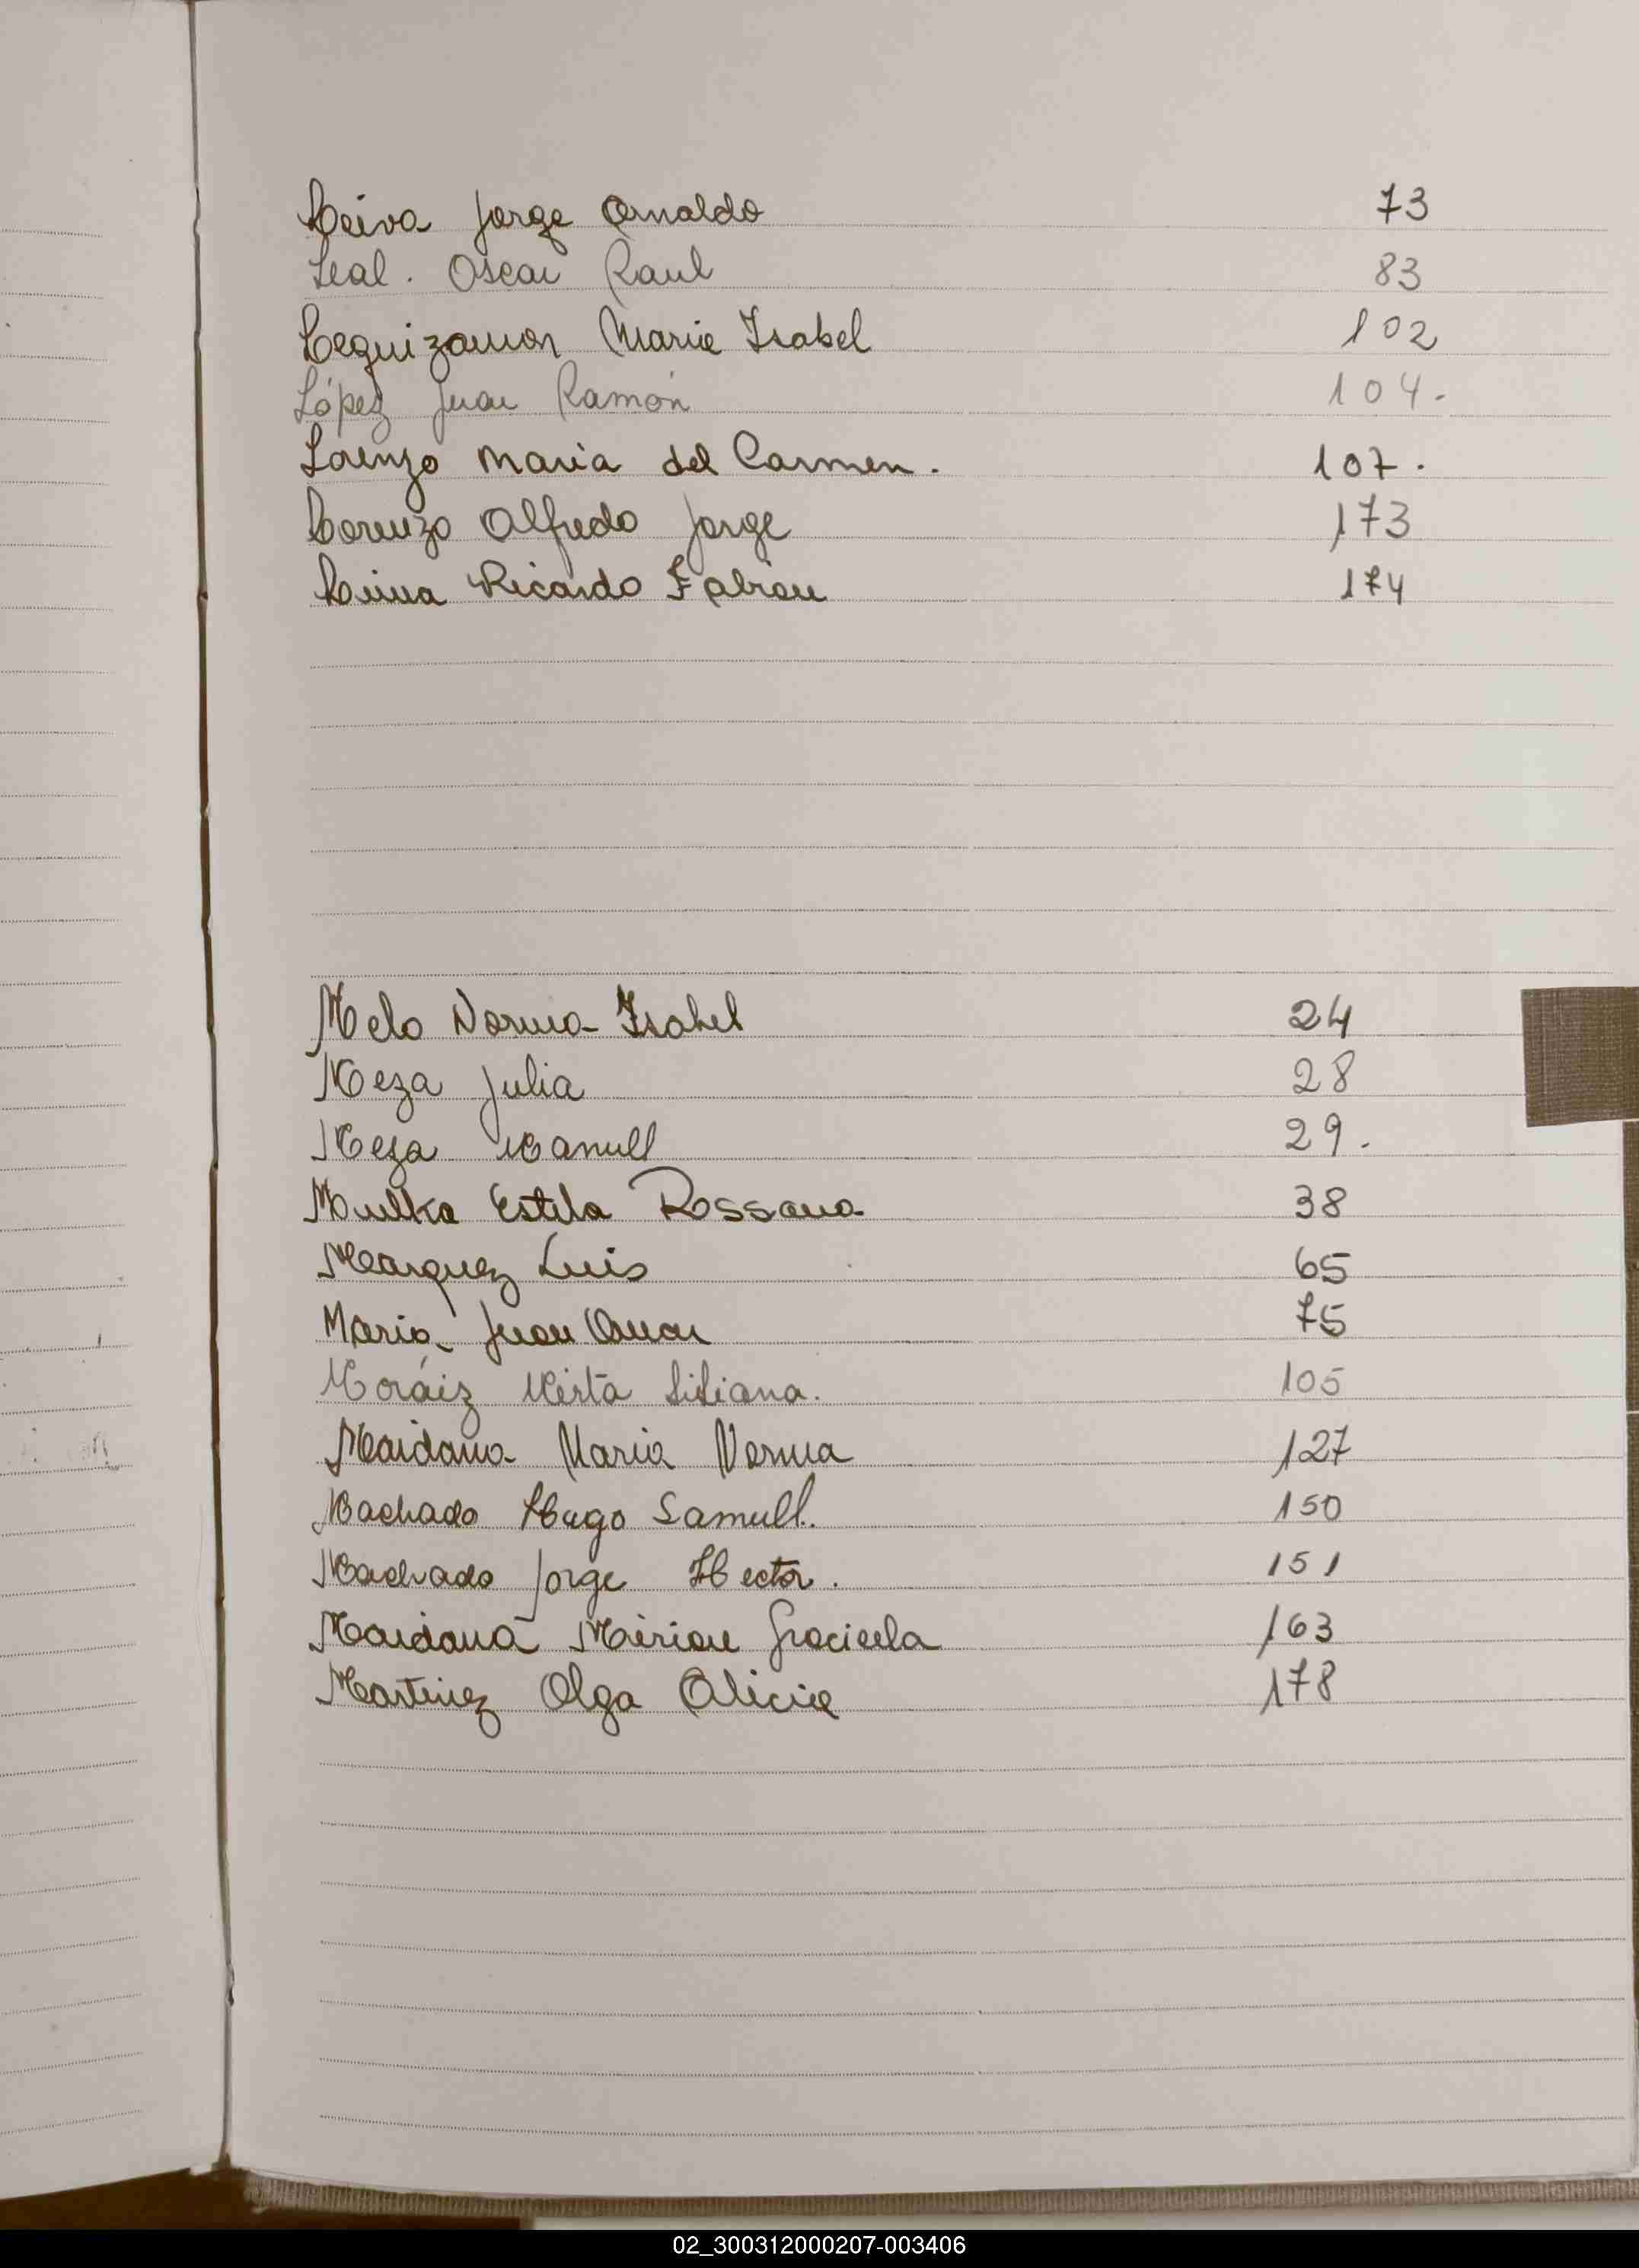 Leiva Jorge Arnaldo 73
Leal. Oscar Raul 83
Leguizamon Maria Isabel 102
López Juan Ramón 104.
Lorenzo Maria del Carmen. 107.
Lorenzo Alfredo Jorge 173
Ricardo Fabian 174
Melo Norma Isabel 24
Meza Julia 28
Meza Manuel 29.
Estela Rossana 38
Marquez Luis 65
Juan Omar 75
Moráiz Mirta Liliana. 105
Maidana Maria Norma 127
Machado Hugo Samuel. 150
Machado Jorge Hector. 151
Maidana Mirian Graciela 163
Martinez Olga Alicia 178
02_300312000207-003406